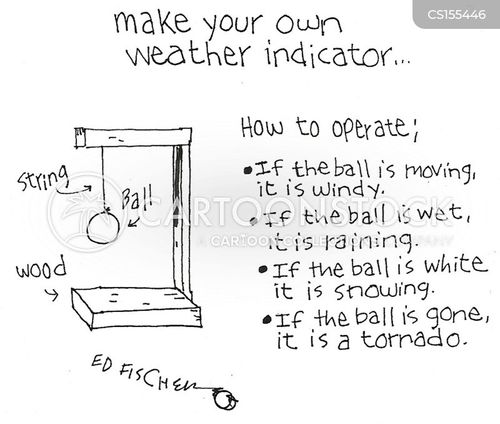 CS155446
make your own
weather indicator...
How to operate;
• If the ball is moving,
it is windy.
• If the ball is wet,
it is raining.
• If the ball is white
it is snowing.
• If the ball is gone,
it is a tornado.
string
Ball
wood
CARTOONSTOCK
A CARTOON COLLECTIONS COMPANY
ED FISCHER